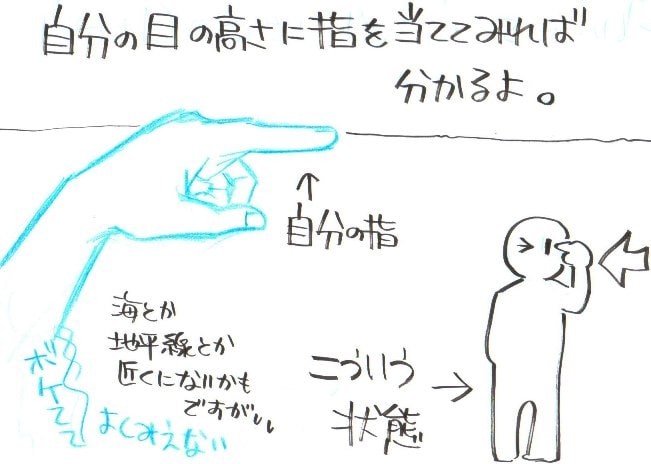 自分の目の高さに指を当ててみれば
分かるよ。
↑
自分の指
海とか
地平線とか
近くにないかも
ですがぃぃ
ボケてて
よくみえない
こういう
状態
→